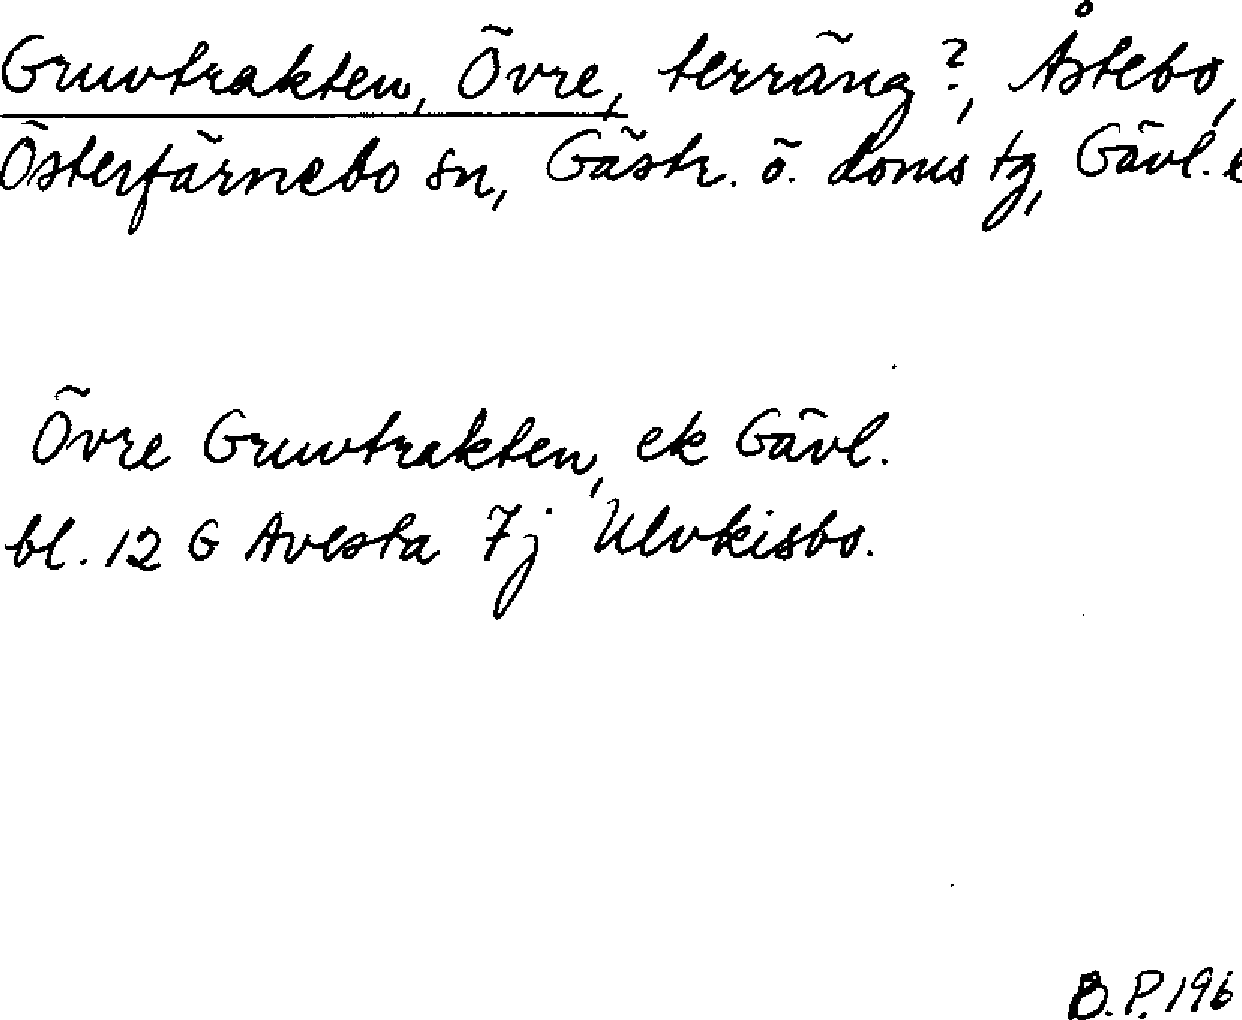 Gruvtrakten, Övre, terräng?, Åstebo,
Österfärnebo sn, Gästr. ö. doms tg, Gävl.
Övre Gruvtrakten, ek Gävl.
bl. 12 G Avesta 7j Ulvkisbo.
B.P. 196